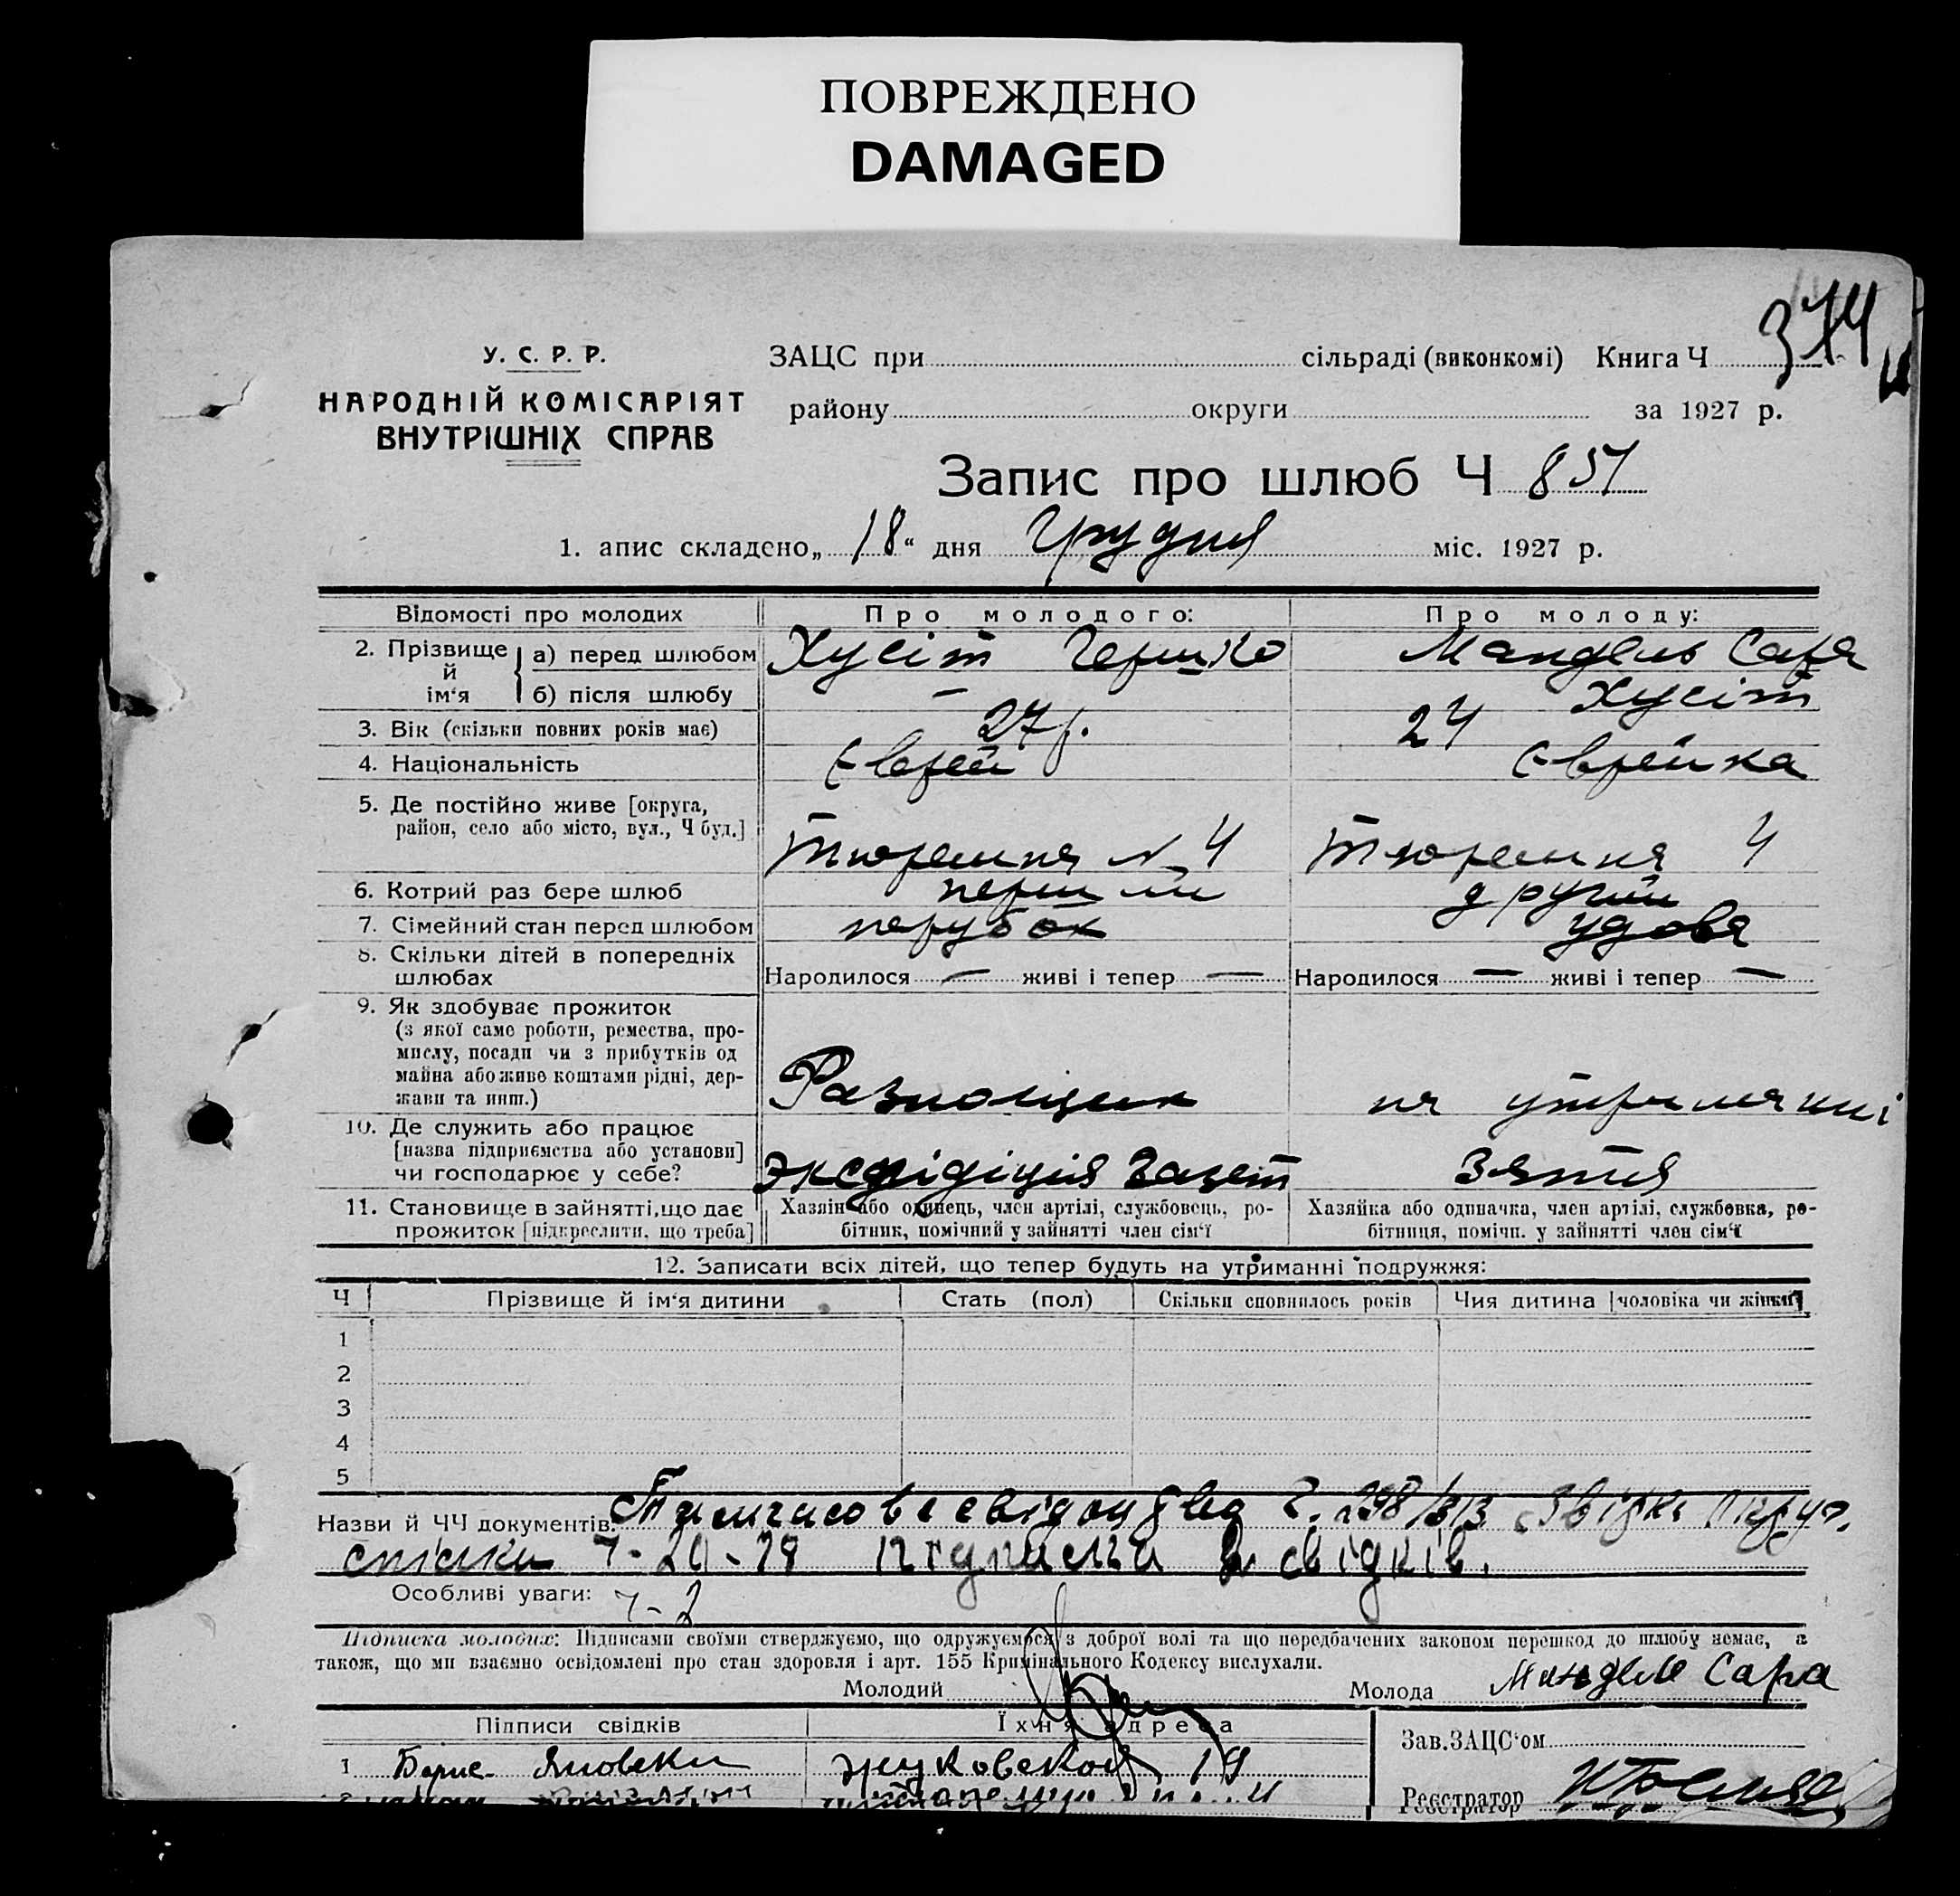 ПОВРЕЖДЕНО
DAMAGED
374
У. С. Р. Р.
НАРОДНІЙ КОМІСАРІЯТ
ВНУТРІШНІХ СПРАВ
ЗАЦС при сільраді (виконкомі) Книга Ч
району округи за 1927 р.
Запис про шлюб Ч 851
1. апис складено „18“ дня Грудня міс. 1927 р.
Відомості про молодих Про молодого: Про молоду:
2. Прізвище й ім‘я а) перед шлюбом Хусіт Гершко Мандель Сара
б) після шлюбу — Хусіт
3. Вік (скільки повних років має) 27 р. 24
4. Національність Єврей Єврейка
5. Де постійно живе [округа,
район, село або місто, вул., Ч буд.] Тюремная № 4 Тюремная 4
6. Котрий раз бере шлюб перший другий
7. Сімейний стан перед шлюбом парубок удова
8. Скільки дітей в попередніх
шлюбах Народилося — живі і тепер — Народилося — живі і тепер —
9. Як здобуває прожиток
(з якої саме роботи, ремества, про-
мислу, посади чи з прибутків од
майна або живе коштами рідні, дер-
жави та инш.) Разнощик на утриманні
10. Де служить або працює
[назва підприємства або установи]
чи господарює у себе? Экспідіція Газет Зятя
11. Становище в зайнятті, що дає
прожиток [підкреслити, що треба]
Хазяїн або одинець, член артілі, службовець, ро-
бітник, помічний у зайнятті член сім‘ї
Хазяйка або одиначка, член артілі, службовка, ро-
бітниця, помічн. у зайнятті член сім‘ї
12. Записати всіх дітей, що тепер будуть на утриманні подружжя:
Ч Прізвище й ім‘я дитини Стать (пол) Скільки сповнилось років Чия дитина [чоловіка чи жінки]
1
2
3
4
5
Назви й ЧЧ документів: Тимчасове свідоцтво
спілки підписка 2 свідків.
Особливі уваги:
Підписка молодих: Підписами своїми стверджуємо, що одружуємося з доброї волі та що передбачених законом перешкод до шлюбу немає, а
також, що ми взаємно освідомлені про стан здоровля і арт. 155 Кримінального Кодексу вислухали.
Молодий Молода Мандель Сара
Підписи свідків Їхня адреса Зав. ЗАЦС‘ом
1 Борис Яновски Жуковской 19
Реєстратор